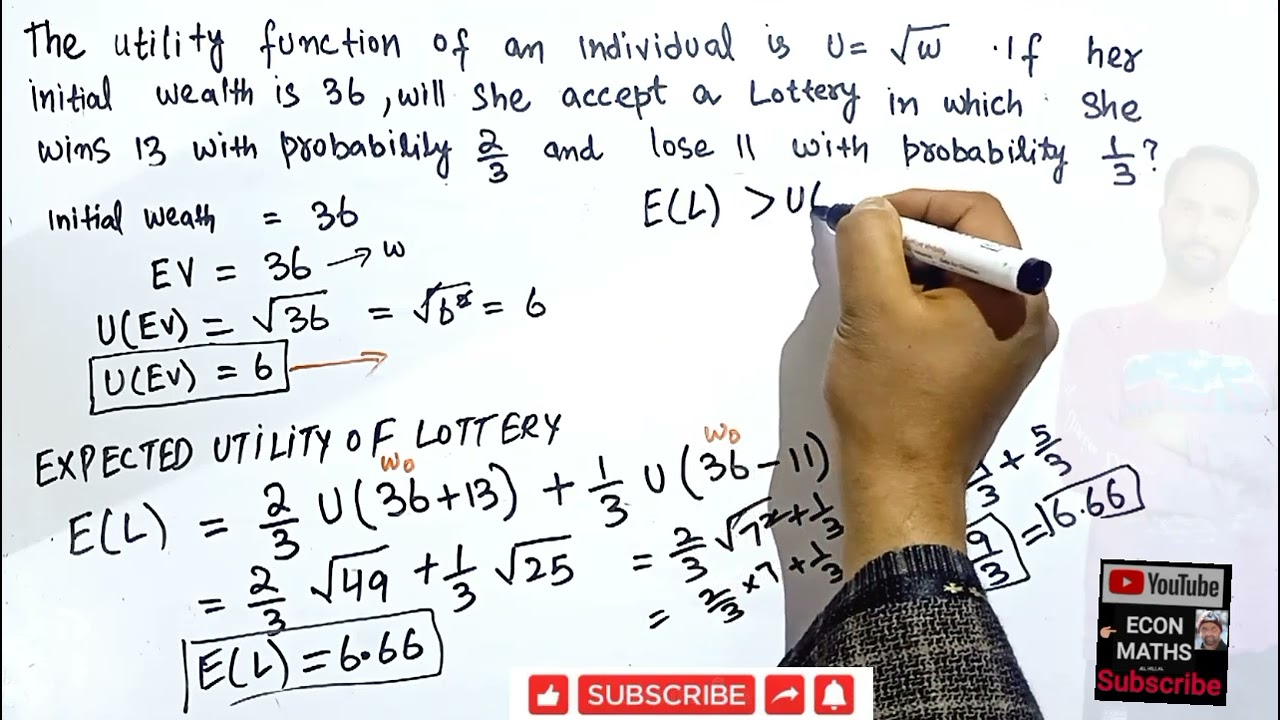 The utility function of an individual is U= √w . If her
initial wealth is 36, will she accept a Lottery in which she
wins 13 with probability 2/3 and lose 11 with probability 1/3?
Initial weath = 36
E(L) > U(
EV = 36 → w
U(EV) = √36 = √6² = 6
U(EV) = 6 →
EXPECTED UTILITY OF LOTTERY
w₀ w₀
E(L) = 2/3 U(36+13) + 1/3 U(36-11)
= 2/3 √49 + 1/3 √25
E(L) = 6.66
= 2/3 √7² + 1/3
= 2/3 × 7 + 1/3
/3 + 5/3
9/3 = 6.66
YouTube
ECON
MATHS
Subscribe
SUBSCRIBE